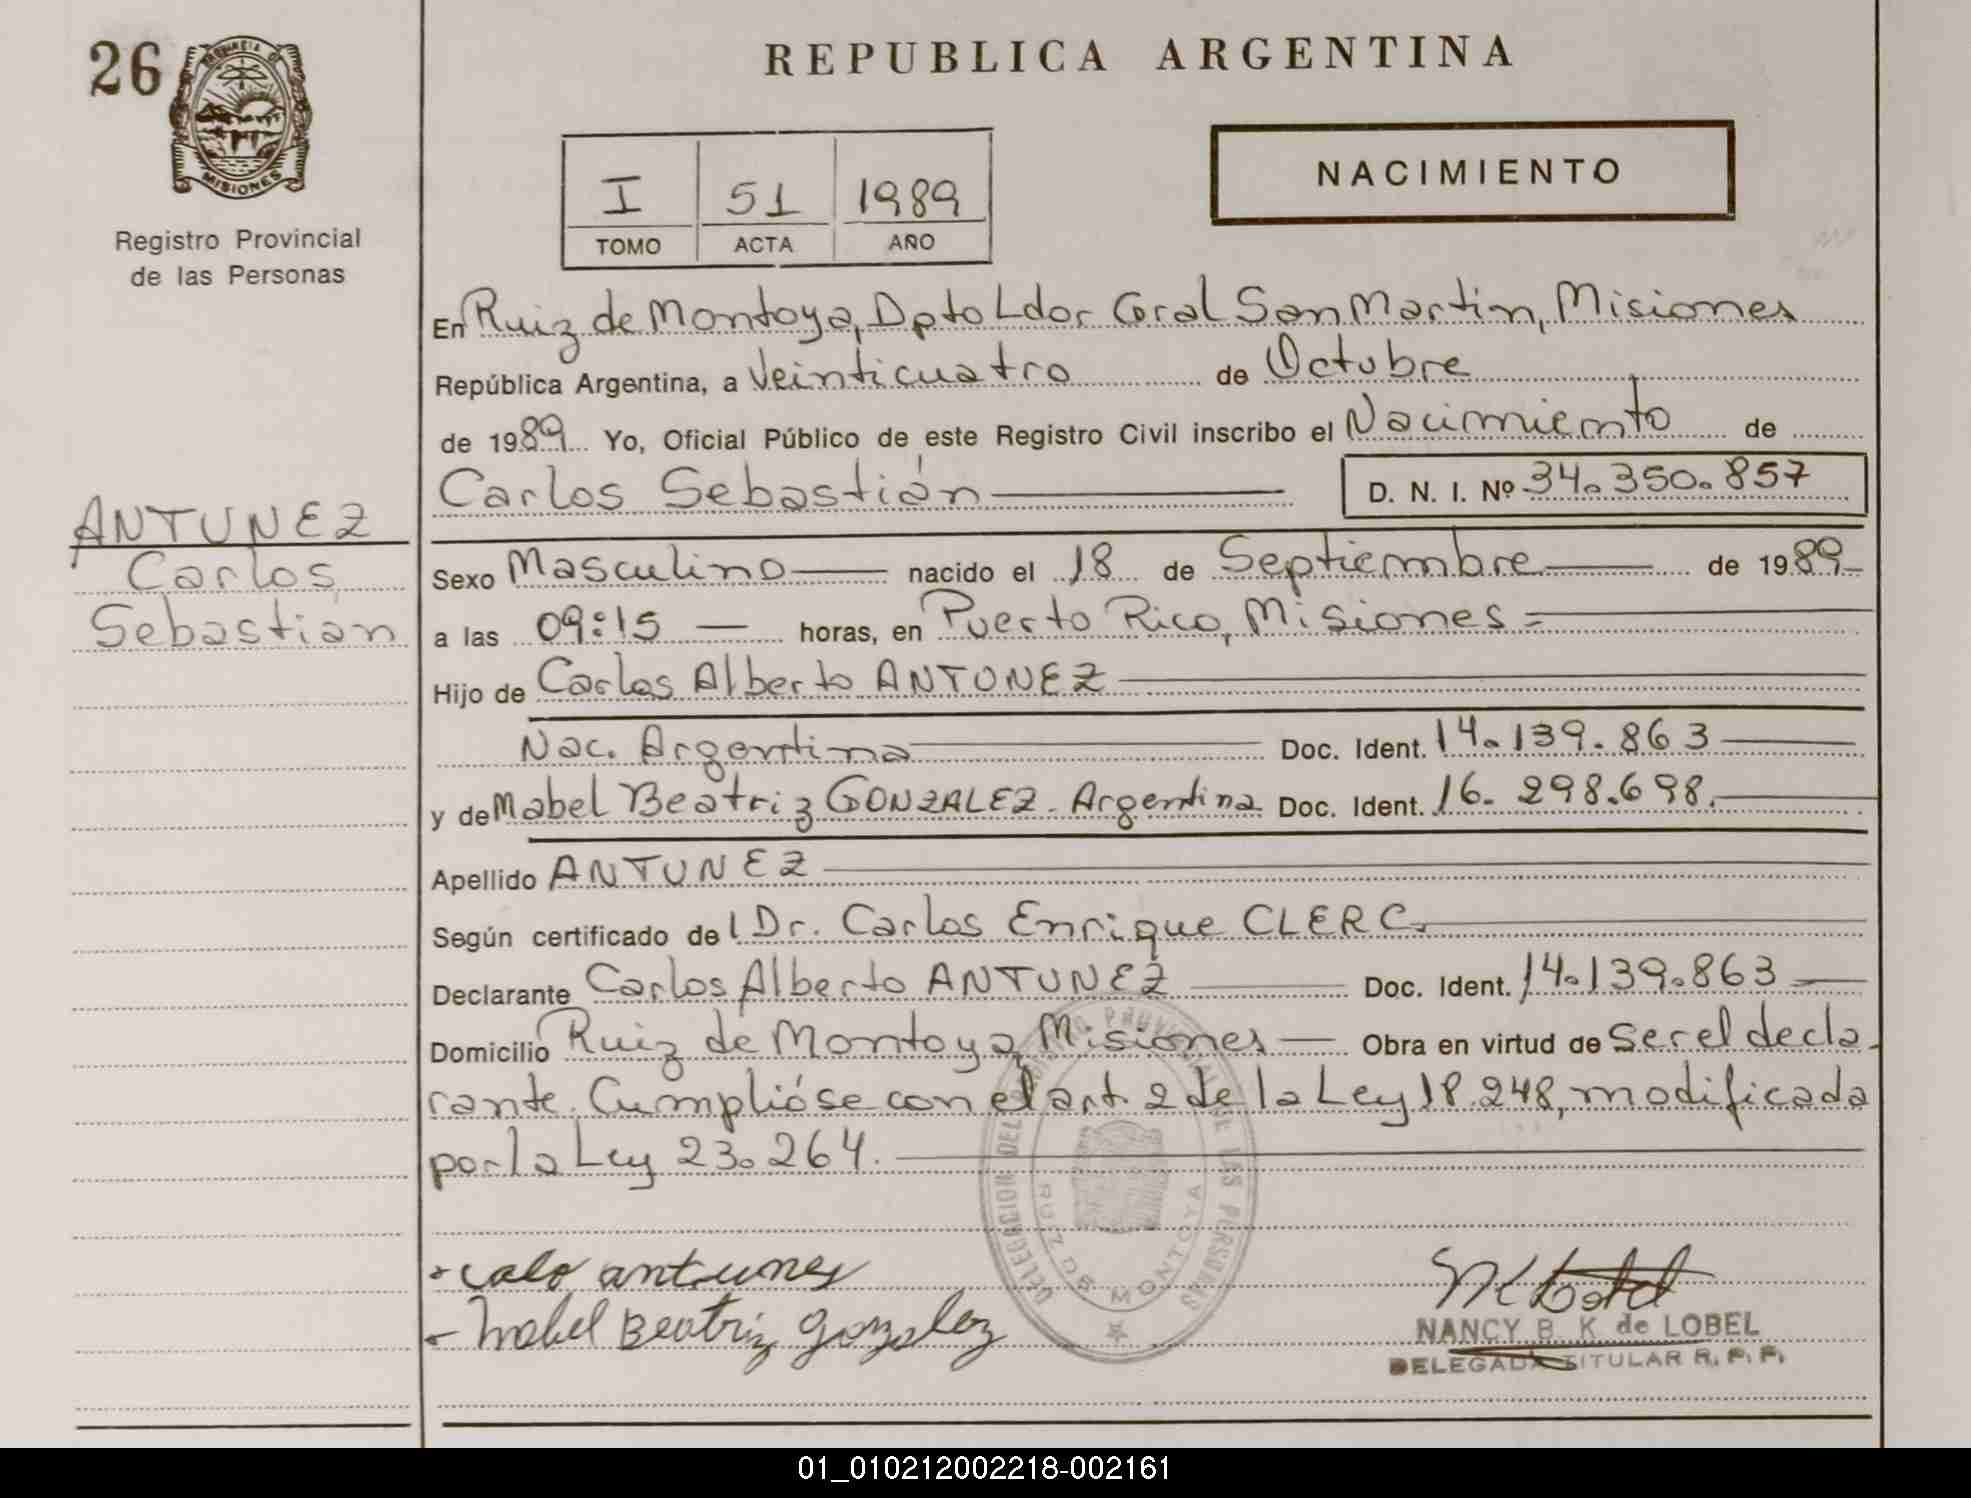 26
PROVINCIA D
MISIONES
Registro Provincial
de las Personas
REPUBLICA ARGENTINA
I 51 1989
TOMO ACTA AÑO
NACIMIENTO
En Ruiz de Montoya, Dpto Ldor Gral San Martin, Misiones
República Argentina, a Veinticuatro de Octubre
de 1989 Yo, Oficial Público de este Registro Civil inscribo el Nacimiento de
Carlos Sebastián D. N. I. Nº 34.350.857
ANTUNEZ
Carlos
Sebastián
Sexo Masculino nacido el 18 de Septiembre de 1989
a las 09:15 horas, en Puerto Rico, Misiones =
Hijo de Carlos Alberto ANTUNEZ
Nac. Argentina Doc. Ident. 14.139.863
y de Mabel Beatriz GONZALEZ - Argentina Doc. Ident. 16.298.698.
Apellido ANTUNEZ
Según certificado del Dr. Carlos Enrique CLERC.
Declarante Carlos Alberto ANTUNEZ Doc. Ident. 14.139.863
Domicilio Ruiz de Montoya, Misiones Obra en virtud de ser el decla-
rante. Cumplióse con el art. 2 de la Ley 18.248, modificada
por la Ley 23.264.
DELEGACION DEL REGISTRO PROVINCIAL DE LAS PERSONAS
RUIZ DE MONTOYA
calo antunes
Mabel Beatriz gonzalez
NANCY B. K. de LOBEL
DELEGADA TITULAR R. P. P.
01_010212002218-002161